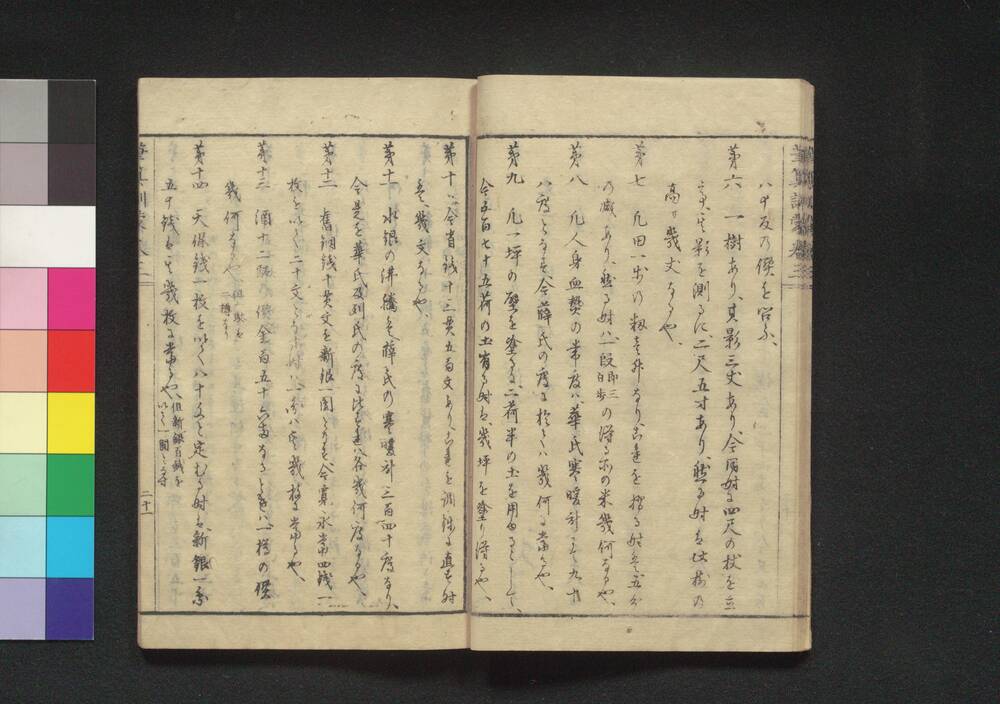 八寸及ノ價を容ふ、
第六 一樹あり、其影三丈あり、今同時に四尺の杖を立
て其影を測るに二尺五寸あり、然る時は此樹の
高サ幾丈なるや、
第七 凡田一歩の籾壱升なり、これを搗る時は五分
の減あり、然る時ハ一段即三百歩の得る所の米幾何なるや、
第八 凡人身血熱の常度ハ華氏寒暖計にて九十
八度とす、今薛氏の度に於てハ幾何に當るや、
第九 凡一坪の壁を塗るに二荷半の土を用ゆるとして、
今五百七十五荷の土有る時は幾坪を塗り得るや、
第十 今省錢十三貫五百文あり、これを調錢に直す時
は幾文なるや、
第十一 水銀の沸騰は薛氏の寒暖計三百四十度なり、
今是を華氏及列氏の度に比すれハ各幾何度なるや、
第十二 舊銅錢十貫文を新銀一圓とす、今寛永常四錢一
枚を以て二十文とする時ハ一分ハ其幾枚に當るや、
第十三 酒十二駄價金百五十六両なるとき一樽の價
幾何なるや、但一駄を二樽なり
第十四 天保錢一枚を以て八十文と定むる時は新銀一朱
五十錢は其幾枚に當るや、但新銀百錢を以て一圓とす
二十一